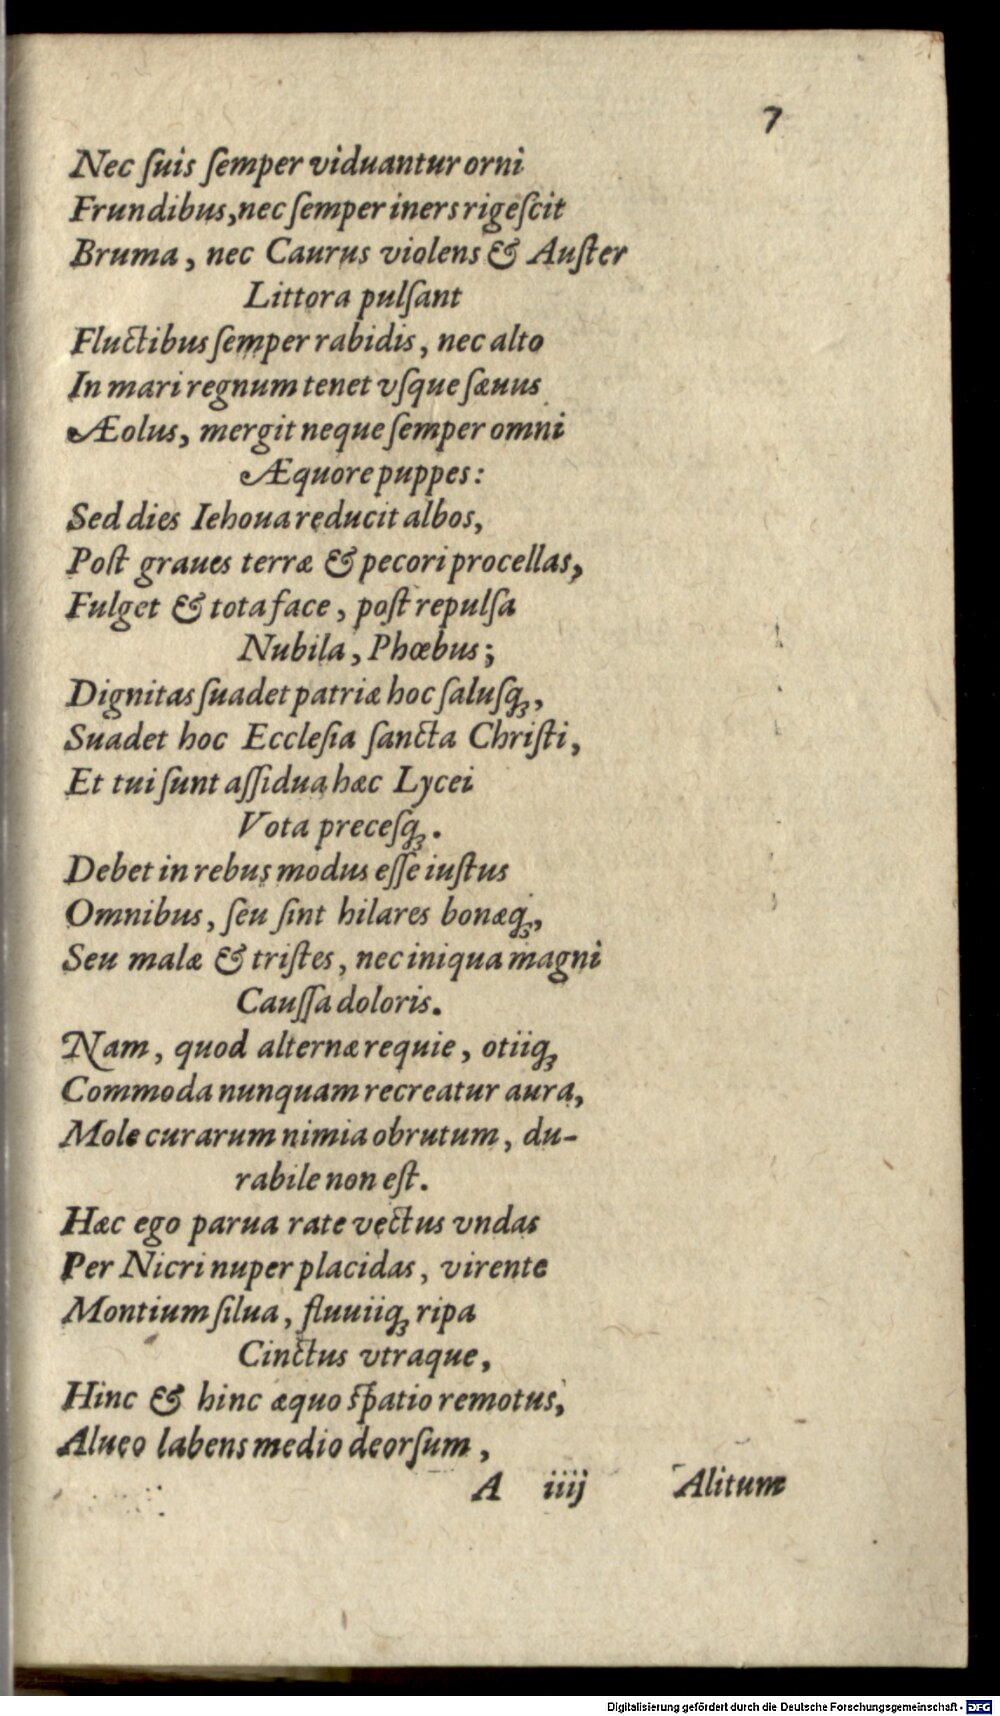 7
Nec ſuis ſemper viduantur orni
Frundibus, nec ſemper iners rigeſcit
Bruma, nec Caurus violens & Auſter
Littora pulſant
Fluctibus ſemper rabidis, nec alto
In mari regnum tenet vſque ſæuus
Æolus, mergit neque ſemper omni
Æquore puppes:
Sed dies Iehoua reducit albos,
Poſt graues terræ & pecori procellas,
Fulget & tota face, poſt repulſa
Nubila, Phœbus;
Dignitas ſuadet patriæ hoc ſaluſq́ꝫ,
Suadet hoc Eccleſia ſancta Chriſti,
Et tui ſunt aſſidua hæc Lycei
Vota preceſqꝫ.
Debet in rebus modus eſſe iuſtus
Omnibus, ſeu ſint hilares bonæqꝫ,
Seu malæ & triſtes, nec iniqua magni
Cauſſa doloris.
Nam, quod alternæ requie, otiiqꝫ
Commoda nunquam recreatur aura,
Mole curarum nimia obrutum, du-
rabile non eſt.
Hæc ego parua rate vectus vndas
Per Nicri nuper placidas, virente
Montium ſilua, fluuiiqꝫ ripa
Cinctus vtraque,
Hinc & hinc æquo ſpatio remotus,
Alueo labens medio deorſum,
A iiij Alitum
Digitalisierung gefördert durch die Deutsche Forschungsgemeinschaft - DFG